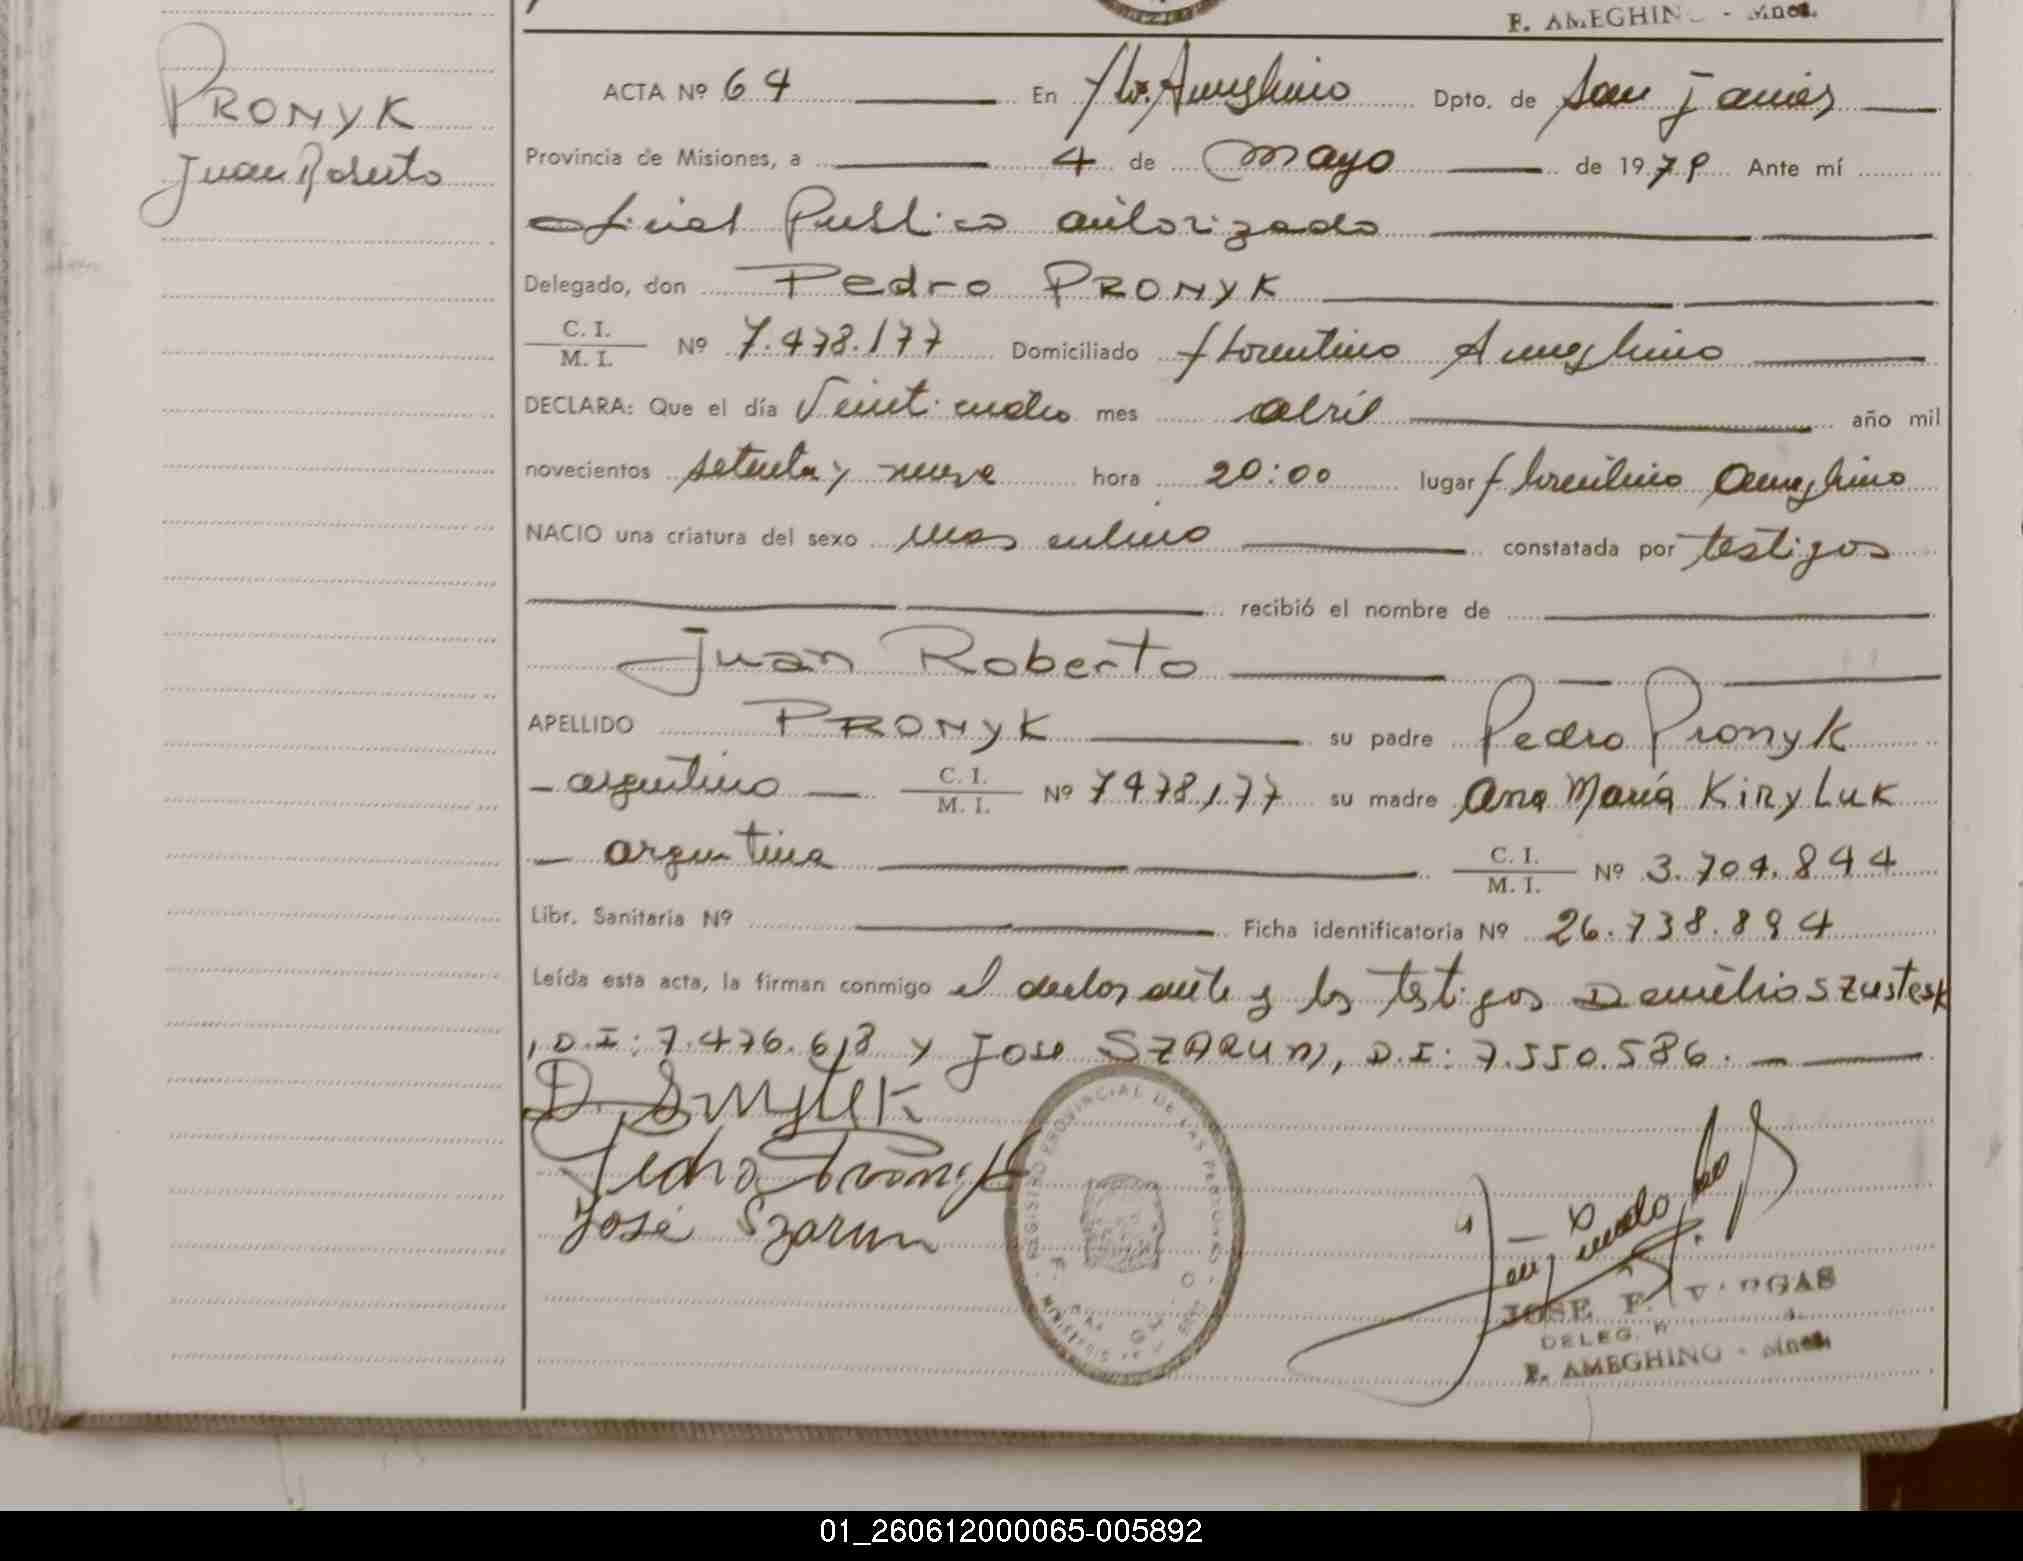 F. AMEGHINO - Mnes.
PRONYK
Juan Roberto
ACTA Nº 64 En Flor. Ameghino Dpto. de San Javier
Provincia de Misiones, a 4 de Mayo de 1979 Ante mí
Oficial Publico autorizado
Delegado, don Pedro PRONYK
C. I.
M. I. Nº 7.478.177 Domiciliado Florentino Ameghino
DECLARA: Que el día Veinticuatro mes abril año mil
novecientos setenta y nueve hora 20:00 lugar florentino Ameghino
NACIO una criatura del sexo masculino constatada por testigos
recibió el nombre de
Juan Roberto
APELLIDO PRONYK su padre Pedro Pronyk
argentino C. I. M. I. Nº 7478177 su madre Ana María KiryLuk
argentina C. I. M. I. Nº 3.704.844
Libr. Sanitaria Nº Ficha identificatoria Nº 26.738.894
Leída esta acta, la firman conmigo el declarante y los testigos Demetrio Szustesk
, D.I: 7.476.618 y Jose SZARUN, D.I: 7.550.586.
Pedro Pronyk
José Szarun
REGISTRO PROVINCIAL DE LAS PERSONAS
JOSE F. VARGAS
DELEG
F. AMEGHINO - Mnes.
01_260612000065-005892